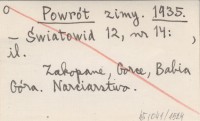 o Powrót zimy. 1935.
– Światowid 12, nr 14: ,
il.
Zakopane, Gorce, Babia
Góra. Narciarstwo.